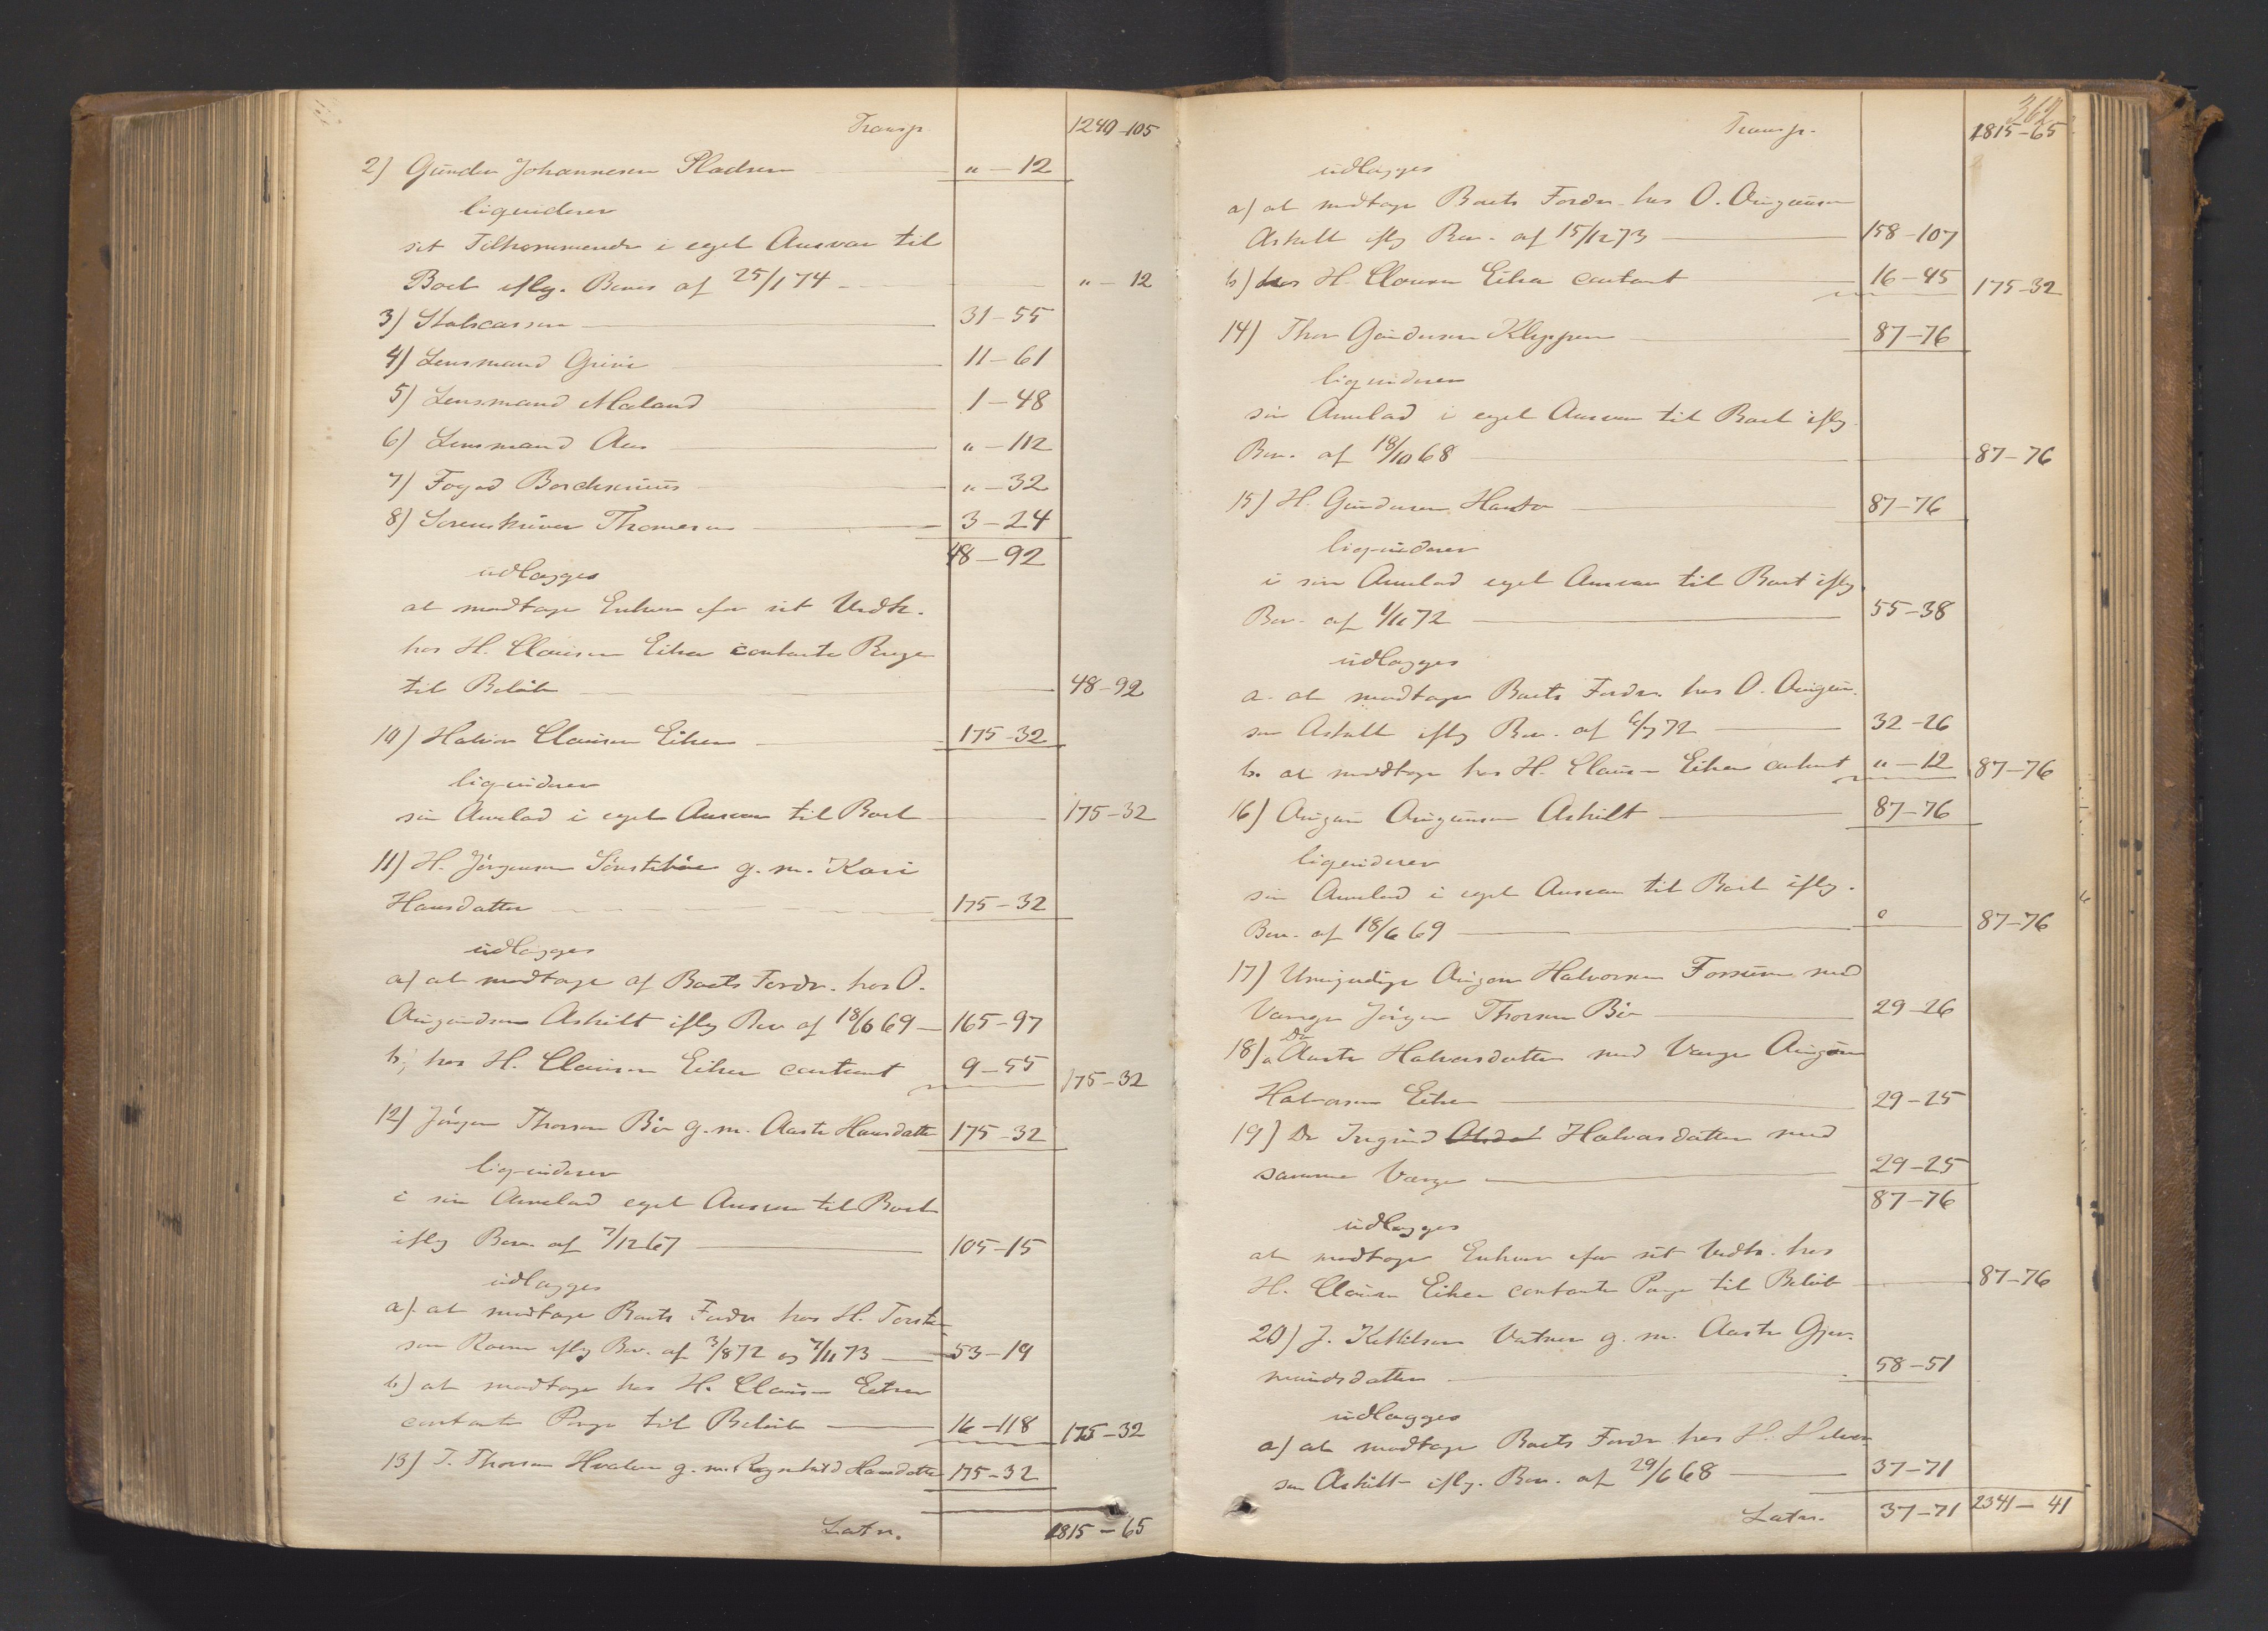 Transp. 1240-105
2) Gunder Johannesen Pladsen " - 12
liqviderer
sit Tilkommende i eget Ansvar til
Boet iflg. Bevis af 25/1 74 " - 12
3) Statscassen 31-55
4) Lensmand Grivi 11-61
5) Lensmand Moland 1-48
6) Lensmand Aas " - 112
7) Foged Borchsenius " - 32
8) Sorenskriver Thomesen 3-24
48-92
udlægges
at modtage Enhver for sit Vedk.
hos H. Clausen Eiken contante Penge
til Beløb 48-92
10) Halvor Clausen Eiken 175-32
liqviderer
sin Arvelod i eget Ansvar til Boet 175-32
11) H. Jørgensen g. m. Kari
Hansdatter 175-32
udlægges
a) at modtage af Boets Fordr. hos O.
Augundsen Askilt iflg Bev. af 18/6 69 165-97
b, hos H. Clausen Eiken contant 9-55 175-32
12) Jørgen Thorsen Bø g. m. Aaste Hansdatter 175-32
liqviderer
i sin Arvelod eget Ansvar til Boet
iflg Bev. af 7/12 67 105-15
udlægges
a). at modtage Boets Fordr hos H. Torsten
sen iflg Bev. af 3/8 72 og 7/11 73 53-19
b) at modtage hos H. Clausen Eiken
contante Penge til Beløb 16-118 175-32
13) T. Thorsen Hvalen g. m. Ragnhild Hansdatter 175-32
Latr. 1815-65
362
Transp. 1815-65
udlægges
a) at modtage Boets Fordr. hos O. Augunsen
Askilt iflg Bev. af 15/12 73 158-107
b) hos H. Clausen Eiken contant 16-45 175-32
14) Thor Gundersen Kleppen 87-76
liqviderer
sin Arvelod i eget Ansvar til Boet iflg.
Bev. af 18/10 68 87-76
15) H. Gundersen 87-76
liqviderer
i sin Arvelod eget Ansvar til Boet iflg.
Bev. af 1/11 72 55-38
udlægges
a. at modtage Boets Fordr. hos O. Augun-
sen Askilt iflg Bev. af 6/7 72 32-26
b. at modtage hos H. Clausen Eiken contant " - 12 87-76
16) Augun Augunsen Askilt 87-76
liqviderer
sin Arvelod i eget Ansvar til Boet iflg.
Bev. af 18/6 69 87-76
17) Umyndige Augon Halvorsen med
Værge Jørgen Thorsen Bø 29-26
18) Do Aaste Halvorsdatter med Værge Augon
Halvorsen Eiken 29-25
19) Do Ingrid Halvorsdatter med
samme Værge 29-25
87-76
udlægges
at modtage Enhver for sit Vedk. hos
H. Clausen Eiken contante Penge til Beløb 87-76
20) J. Kittilsen Vatnen g. m. Aaste Gjer-
mundsdatter 58-51
udlægges
a) at modtage Boets Fordr hos H. Halvor
sen Askilt iflg. Bev. af 29/6 68 37-71
Latr. 37-71 2341-41